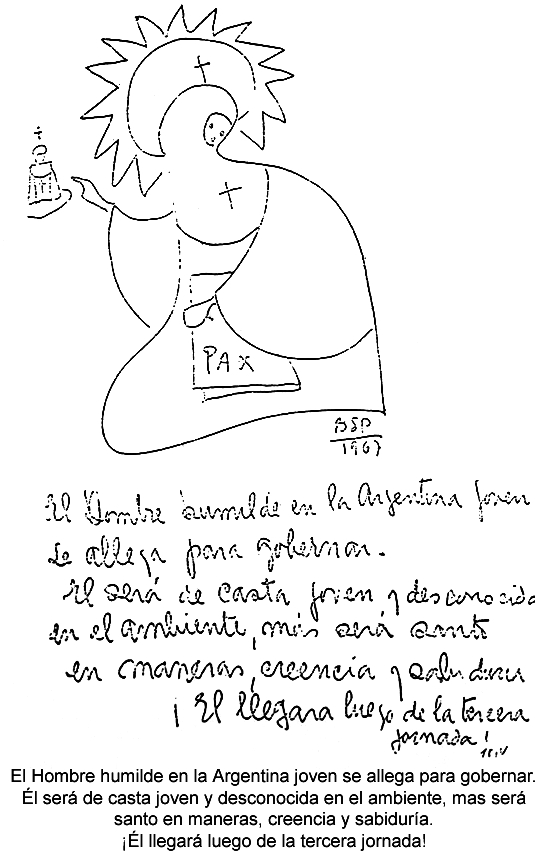 PAX
BSP
1967
El Hombre humilde en la Argentina joven
se allega para gobernar.
El será de casta joven y desconocida
en el ambiente, más será santo
en maneras, creencia y sabiduría
¡El llegara luego de la tercera
jornada!
El Hombre humilde en la Argentina joven se allega para gobernar.
Él será de casta joven y desconocida en el ambiente, mas será
santo en maneras, creencia y sabiduría.
¡Él llegará luego de la tercera jornada!